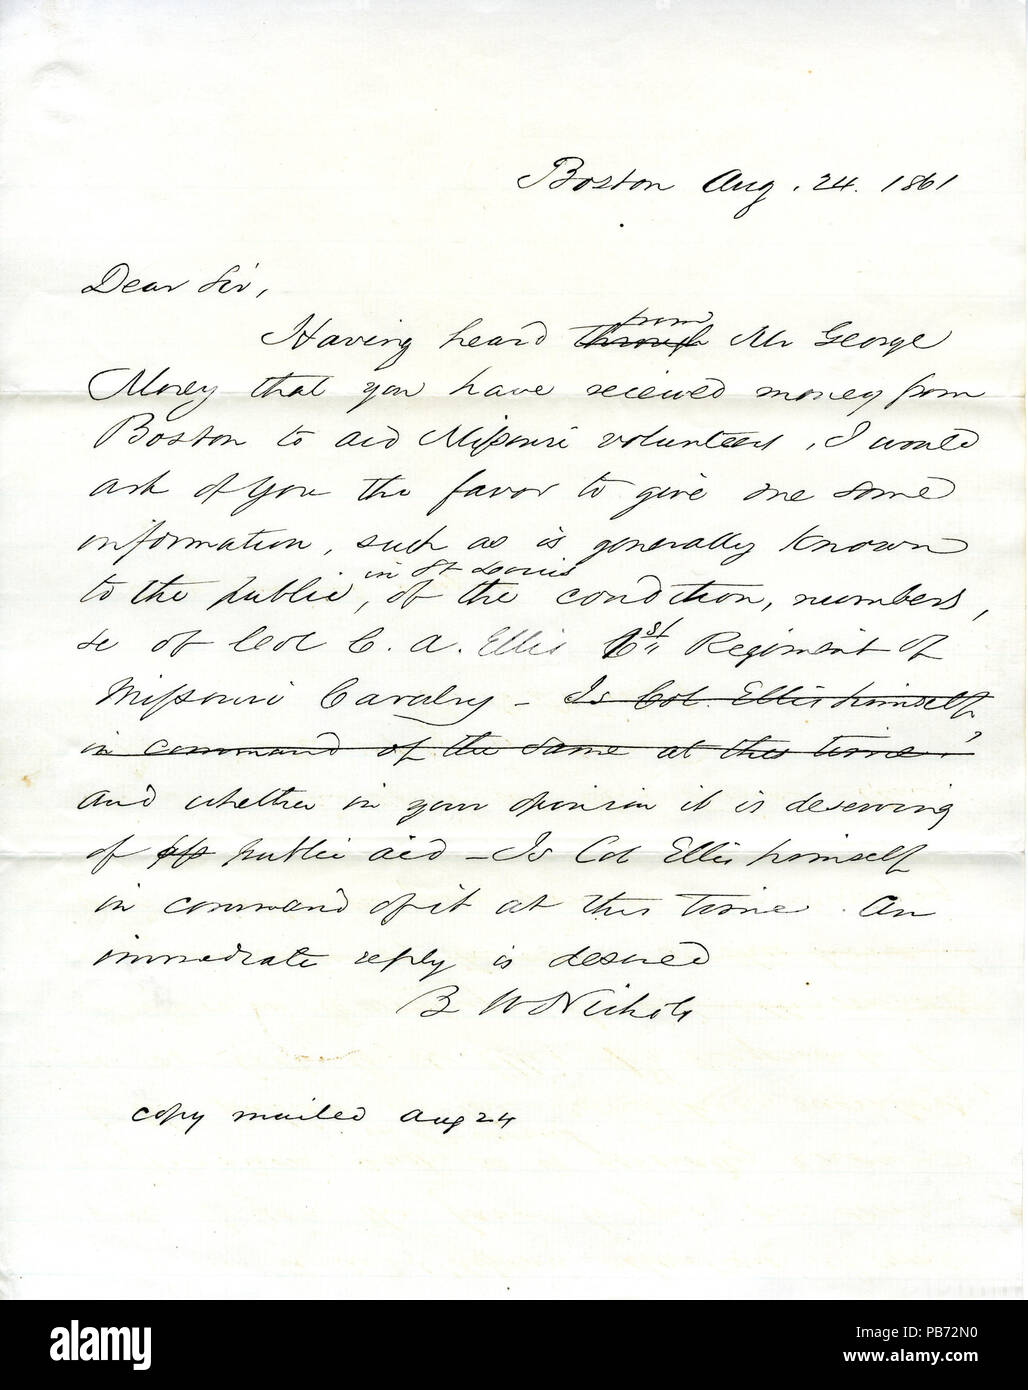 Boston Aug. 24. 1861
Dear Sir,
from
Having heard through Mr George
Morey that you have recieved money from
Boston to aid Missouri volunteers, I would
ask of you the favor to give me some
information, such as is generally known
in St Louis
to the public, of the condition, numbers,
&c of Col C. A. Ellis 1st Regiment of
Missouri Cavalry - Is Col. Ellis himself
in command of the same at this time?
and whether in your opinion it is deserving
of public aid - Is Col Ellis himself
in command of it at this time. An
immediate reply is desired
B W Nichols
copy mailed Aug 24
alamy
Image ID: PB72N0
www.alamy.com